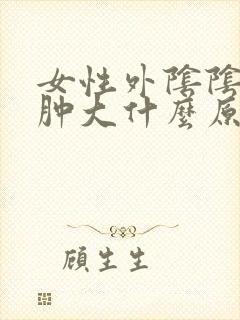 女性外陰陰
肿大什麼原
顧生生